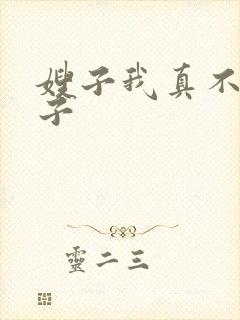 嫂子我真不
子
靈二三